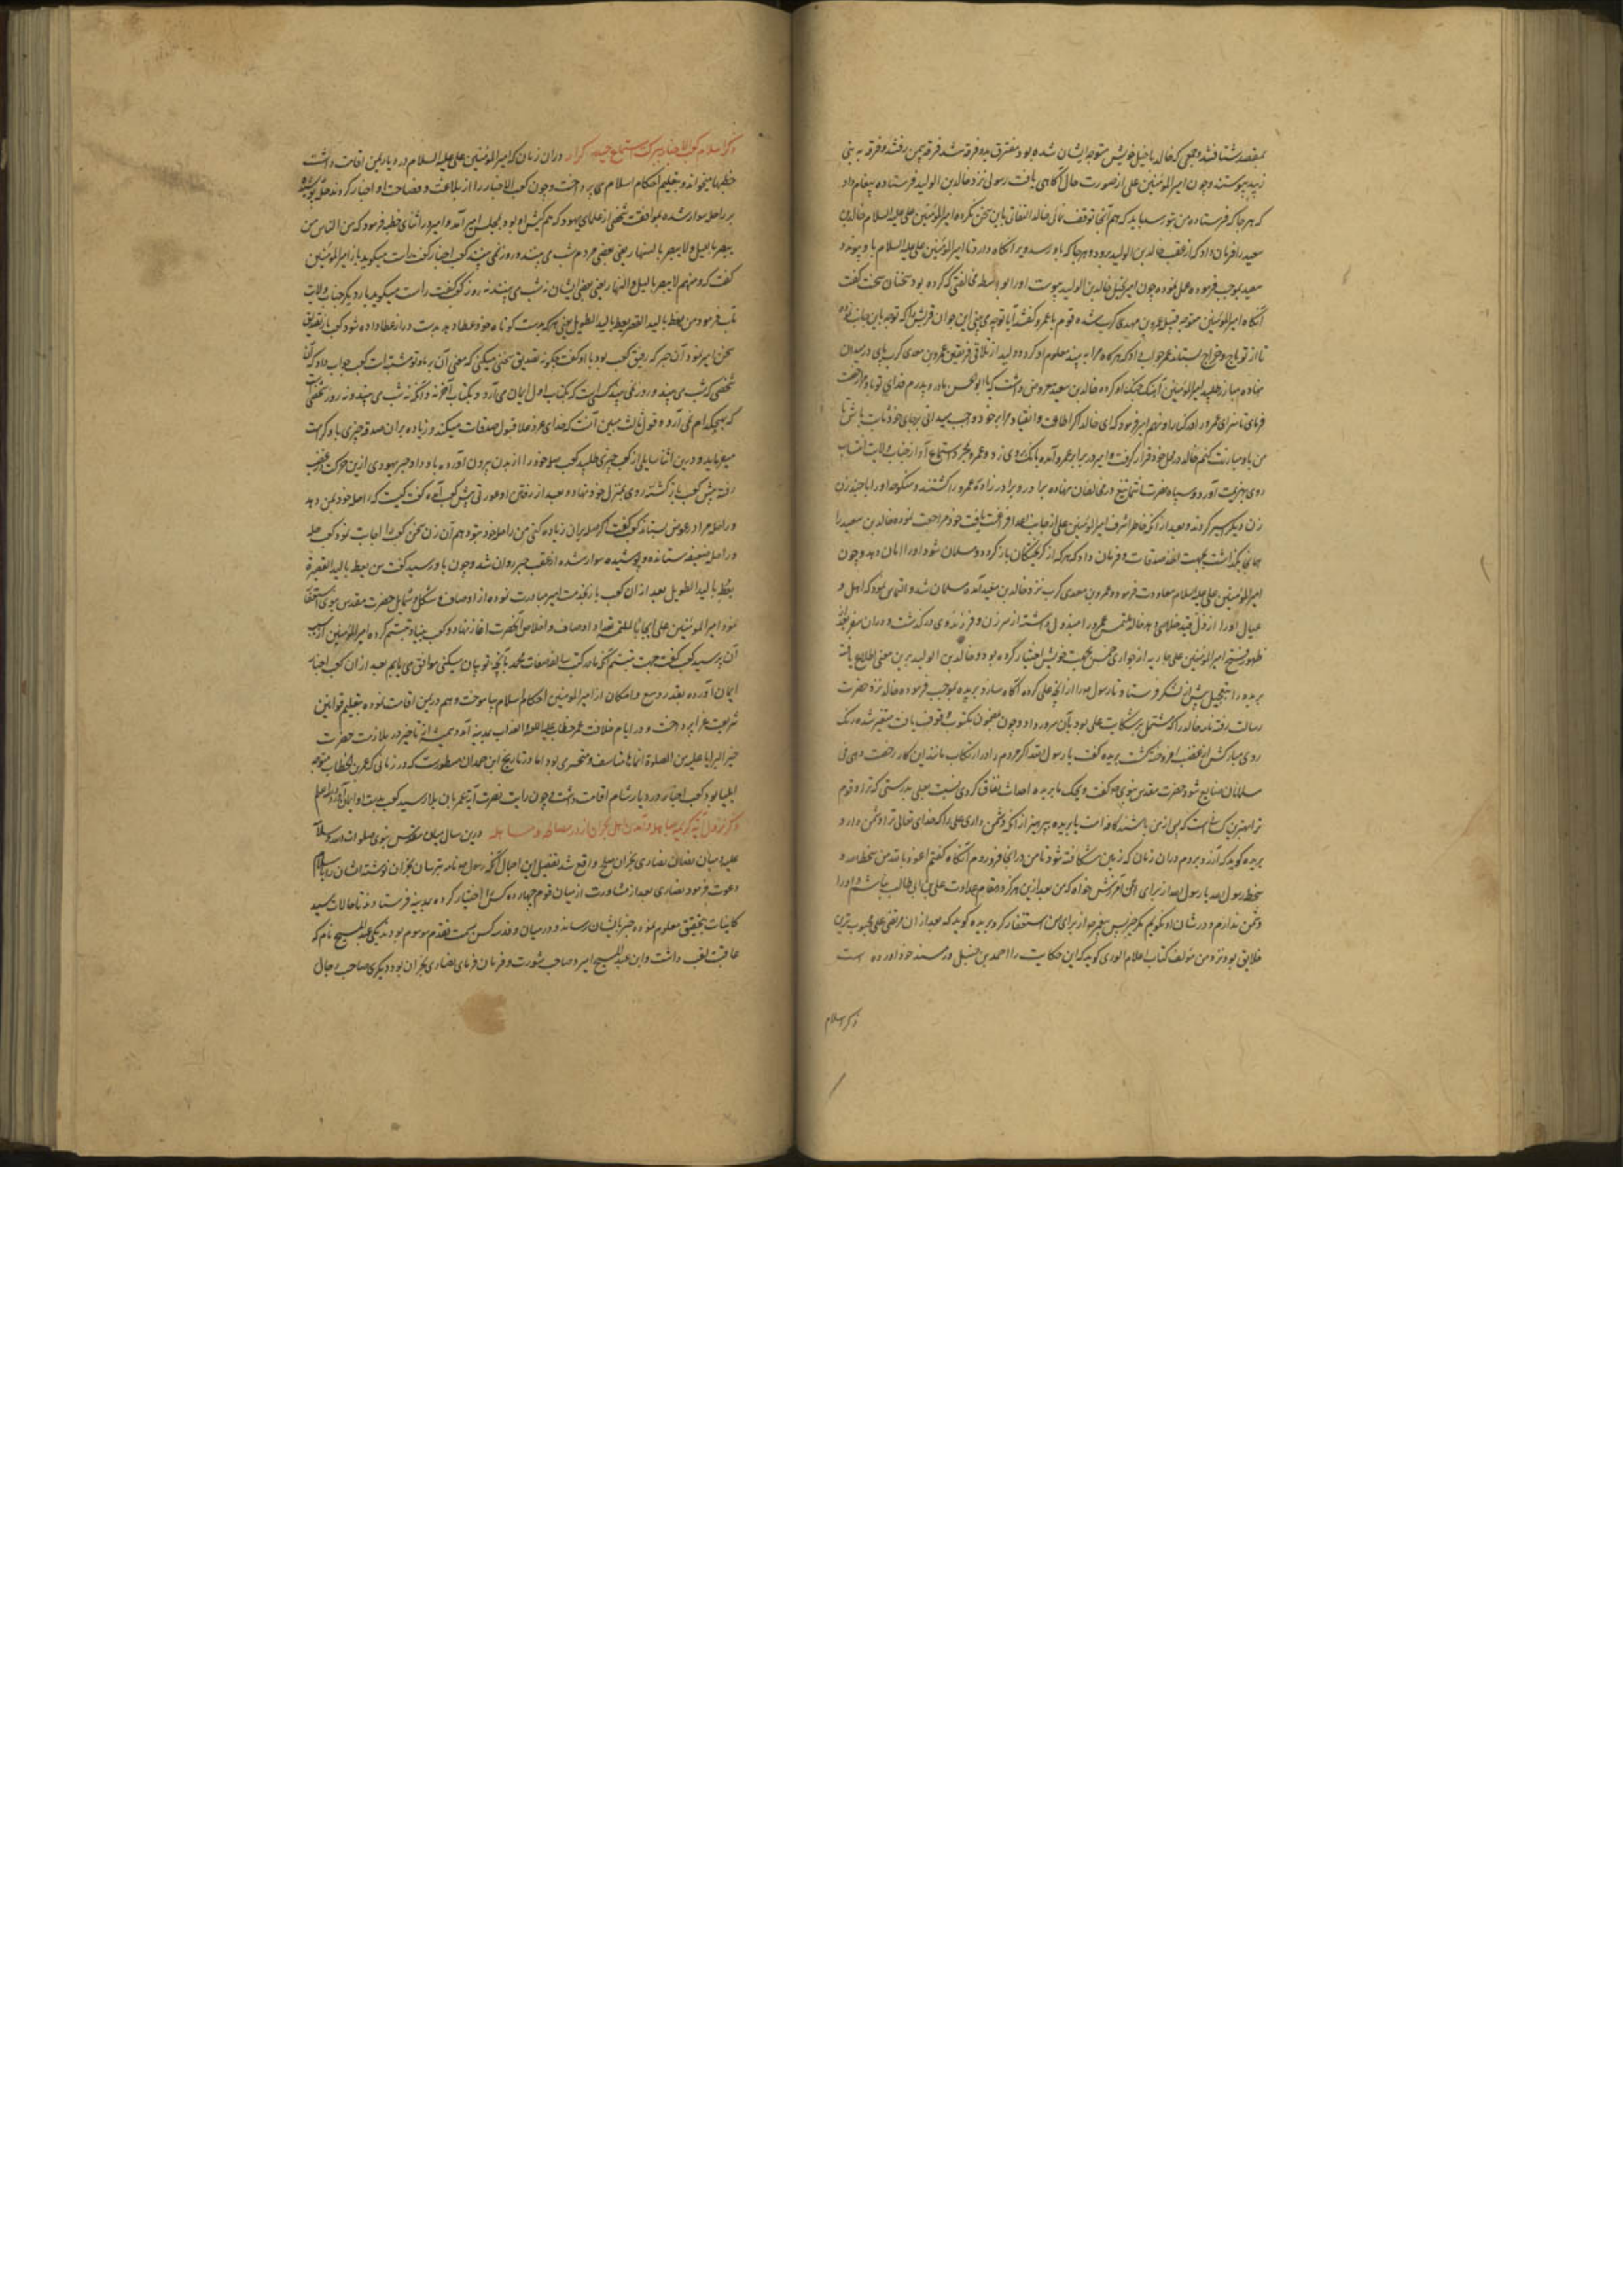 بمقصد شتافتند و جمعی که خالد با خیل خویش متوجه ایشان شده بود متفرق بدو فرقه شد فرقه بیمن رفتند و فرقه به بنی
زبید پیوستند و چون امیرالمؤمنین علی از صورت حال آگاهی یافت رسولی نزد خالد بن الولید فرستاده پیغام داد
که هر جا که فرستاده من بتو رسد باید که هم آنجا توقف نمائی خالد التفاتی باین سخن نکرده امیرالمؤمنین علی علیه السلام خالد بن
سعید را فرمان داد که از عقب خالد بن الولید برود و هر جا که باو رسد ویرا نگاه دارد تا امیرالمؤمنین علی علیه السلام باو پیوندد
سعید بموجب فرموده عمل نموده چون امیر بخالد بن الولید پیوست او را بواسطه مخالفتی که کرده بود سخنان سخت گفت
آنگاه امیرالمؤمنین متوجه قبیله عمرو بن معدی کرب شده قوم با عمرو گفتند آیا تو چه می بینی این جوان قریشی را که توجه باین جانب نموده
تا از تو باج و خراج بستاند عمرو جواب داد که هرگاه مرا به بیند معلوم او گردد و بعد از تلاقی فریقین عمرو بن معدی کرب پای در میدان
نهاده مبارز طلبید امیرالمؤمنین آهنگ جنگ او کرده خالد بن سعید معروض داشت که یا ابو الحسن مادر و پدرم فدای تو باد مرا رخصت
فرمای تا سزای عمرو را در کنار او نهم امیر فرمود که ای خالد اگر اطاعت و انقیاد مرا بر خود واجب میدانی بر جای خود ثابت باش تا
من باو مبارزت کنم خالد در محل خود قرار گرفت و امیر در برابر عمرو آمده بانگ بروی زد و عمرو بمجرد استماع آواز جناب ولایت انتساب
روی بهزیمت آورد و سپاه نصرت انتما تیغ در مخالفان نهاده برادر و برادرزاده عمرو را کشتند و منکوحه او را با چند زن
زن دیگر اسیر کردند و بعد از آنکه خاطر اشرف امیرالمؤمنین علی از جانب اعدا فراغت یافت خود مراجعت نموده خالد بن سعید را
همانجا بگذاشت بجهت اخذ صدقات و فرمان داد که هر که از گریختگان باز گردد و مسلمان شود او را امان دهد و چون
امیرالمؤمنین علی علیه السلام معاودت فرمود عمرو بن معدی کرب نزد خالد بن سعید آمده مسلمان شد و التماس نمود که اهل و
عیال او را از ذل قید خلاصی دهد خالد ملتمس عمرو را مبذول داشته از سر زن و فرزند وی درگذشت و در آن سفر بعد از
ظهور فتح امیرالمؤمنین علی جاریه از جواری خمس بجهت خویش اختیار کرده بود و خالد بن الولید برین معنی اطلاع یافته
بریده را بتعجیل پیش از لشکر فرستاد تا رسول را از آنچه علی کرده آگاه سازد بریده بموجب فرموده خالد نزد حضرت
رسالت رفته نامه خالد را که مشتمل بر شکایت علی بود بآن سرور داد و چون بمضمون مکتوب وقوف یافت متغیر شده رنگ
روی مبارکش از غضب افروخته گشت بریده گفت یا رسول الله اگر مردم را در ارتکاب مانند این کار رخصت دهی فی
مسلمانان ضایع شود حضرت مقدس نبوی گفت ویحک یا بریده احداث نفاق کردی نسبت بعلی بدرستی که ترا و قوم
ترا بهترین کسانست که پس از من باشند کافه امت یا بریده بپرهیز از آنکه دشمن داری علی را که خدای تعالی ترا دشمن دارد
بریده گوید که آرزو بردم در آن زمان که زمین شکافته شود تا من در آنجا فرو روم آنگاه گفتم اعوذ بالله من سخط الله و
سخط رسول الله یا رسول الله از برای من آمرزش خواه که من بعد از این هرگز در مقام عداوت علی بن ابی طالب نباشم و او را
دشمن ندارم و در شان او نگویم مگر خیر پس پیغمبر از برای من استغفار کرد بریده گوید که بعد از آن مرتضی علی محبوب ترین
خلایق بود نزد من مؤلف کتاب اعلام الوری گوید که این حکایت را احمد بن حنبل در مسند خود آورده است
ذکر اسلام
ذکر اسلام کعب الاخبار ببرکت استماع حیدر کرار در آن زمان که امیرالمؤمنین علی علیه السلام در دیار یمن اقامت داشت
خطبها میخواند و بتعلیم احکام اسلام می پرداخت و چون کعب الاخبار را از بلاغت و فصاحت او اخبار کردند حله پوشیده
بر راحله سوار شده بموافقت شخصی از علمای یهود که هم کیش او بود بمجلس امیر آمد و امیر در اثنای خطبه فرمود که من الناس من
یبصر باللیل و لا یبصر بالنهار یعنی بعضی مردم شب می بینند و روز نمی بینند کعب احبار گفت راست میگوید باز امیرالمؤمنین
گفت که و منهم لا یبصر باللیل و النهار یعنی بعضی ایشان نه شب می بینند نه روز کعب گفت راست میگوید بار دیگر جناب ولایت
مآب فرمود من یعط بالید القصیرة یعط بالید الطویل یعنی هر که بدست کوتاه خود عطا دهد بدست دراز عطا داده شود کعب باز تصدیق
سخن امیر نمود آن حبر که رفیق کعب بود با او گفت چگونه تصدیق سخنی میکنی که معنی آن بر ما و تو مشتبه است کعب جواب داد که آن
شخصی که شب می بیند و روز نمی بیند کسی است که بکتاب اول ایمان می آرد و بکتاب آخر نه و آنکه نه شب می بیند و نه روز شخصی است
که بهیچکدام نمی آرد و قول ثالث مبین آنست که خدای عز و علا قبول صدقات میکند و زیاده بر آن صدقه چیزی باو کرامت
میفرماید و درین اثنا سایلی از کعب چیزی طلبید کعب حله خود را از بدن بیرون آورده باو داد و حبر یهودی ازین حرکت در غضب
رفته پیش کعب باز گشته روی بمنزل خود نهاد و بعد از رفتن او عورتی پیش کعب آمده گفت کیست که راحله خود بمن دهد
و راحله مرا در عوض بستاند کعب گفت اگر حله بر آن زیاده کنی من راحله خود بتو دهم آن زن سخن کعب را اجابت نمود کعب حله
و راحله ضعیفه ستانده و پوشیده سوار شده از عقب حبر روان شد و چون باو رسید گفت من یعط بالید القصیرة
یعط بالید الطویل بعد از آن کعب باز بخدمت امیر مبادرت نموده از اوصاف و شکل و شمایل حضرت مقدس نبوی استفسار
نمود امیرالمؤمنین علی ایجابا لملتمسه تعداد اوصاف و اخلاص آنحضرت آغاز نهاد و کعب بنیاد تبسم کرده امیرالمؤمنین از سبب
آن پرسید کعب گفت جهت تبسم آنکه ما در کتب سالفه صفات محمد بآنچه تو بیان میکنی موافق می یابیم بعد از آن کعب احبار
ایمان آورده بقدر وسع و امکان از امیرالمؤمنین احکام اسلام بیاموخت و هم در یمن اقامت نموده بتعلیم قوانین
شریعت غرا پرداخت و در ایام خلافت عمر خطاب بمدینه آمد و همیشه از تاخیر در ملازمت حضرت
خیر البرایا علیه من الصلوة انماها متاسف و متحسر می بود اما در تاریخ ابن حمدان مسطورست که در زمانی که عمر بن الخطاب متوجه
ایلیا بود کعب احبار در دیار شام اقامت داشت و چون رایت نصرت آیه عمر بآن بلاد رسید کعب بدست او ایمان آورد
ذکر نزول آیه کریمه مباهله و آمدن اهل نجران از در مصالحه و مباهله درین سال میان مقدس نبوی صلوات الله و سلامه
علیه و میان نصارای نجران صلح واقع شد تفصیل این اجمال آنکه رسول نامه بترسایان نجران نوشته ایشان را باسلام
دعوت فرمود نصاری بعد از مشاورت از میان قوم چهارده کس را اختیار کرده بمدینه فرستادند تا حالات سید
کاینات بتحقیق معلوم نموده خبر بایشان رسانند و در میان وفد سه کس بسمت تقدم موسوم بودند یکی عبد المسیح نام که
عاقب لقب داشت و این عبد المسیح امیر و صاحب شورت و فرمان فرمای نصارای نجران بود و دیگری صاحب رحال